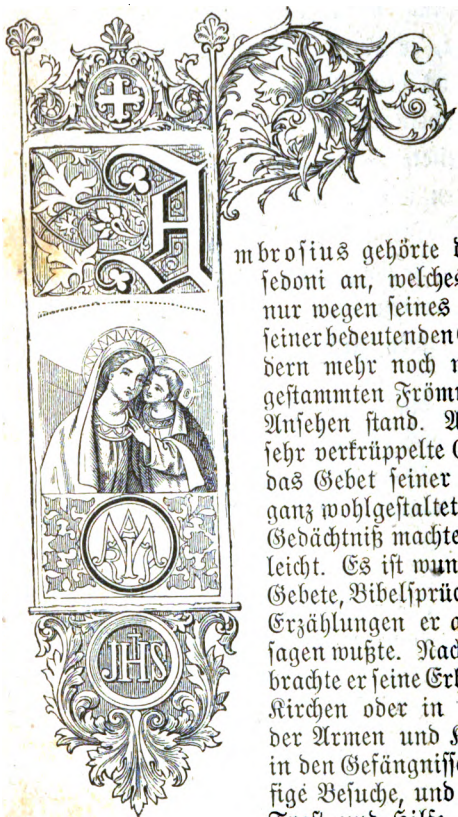 A
mbrosius gehörte
sedoni an, welches
nur wegen seines
seiner bedeutenden
dern mehr noch
gestammten
Ansehen stand.
sehr verkrüppelte
das Gebet seiner
ganz wohlgestaltet
Gedächtniß machte
leicht. Es ist
Gebete,
Erzählungen er
sagen wußte.
brachte er seine
Kirchen oder in
der Armen und
in den
fige Besuche, und
JHS